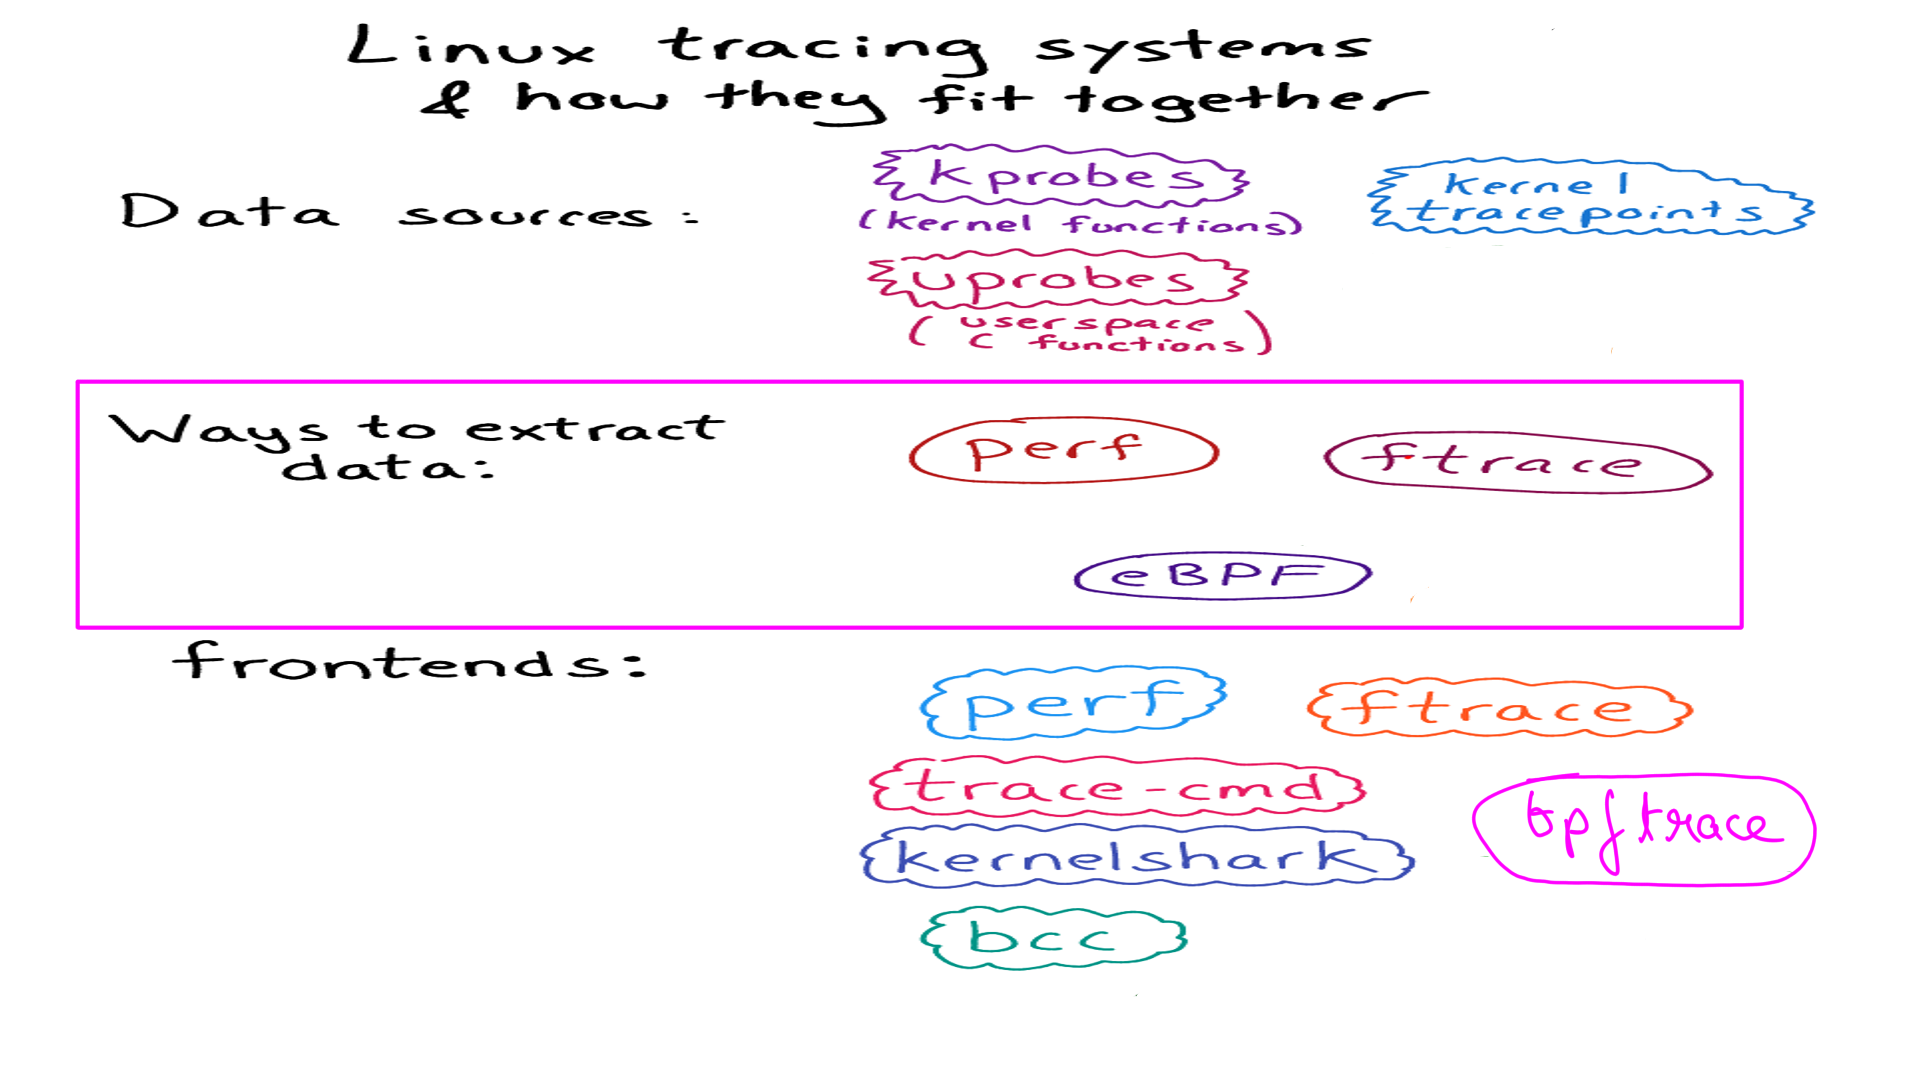 Linux tracing systems
& how they fit together
Data sources:
kprobes
(kernel functions)
kernel
tracepoints
uprobes
(userspace
C functions)
Ways to extract
data:
perf
ftrace
eBPF
frontends:
perf
ftrace
trace-cmd
kernelshark
bpftrace
bcc